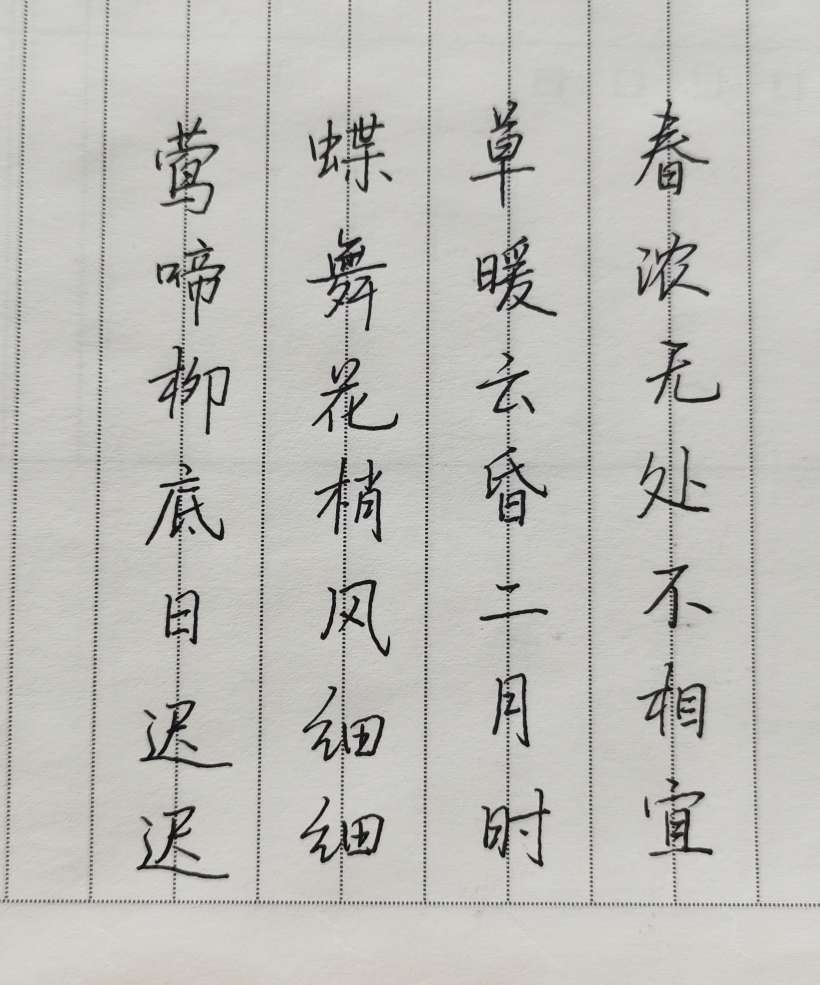 春浓无处不相宜
草暖云昏二月时
蝶舞花梢风细细
莺啼柳底日迟迟